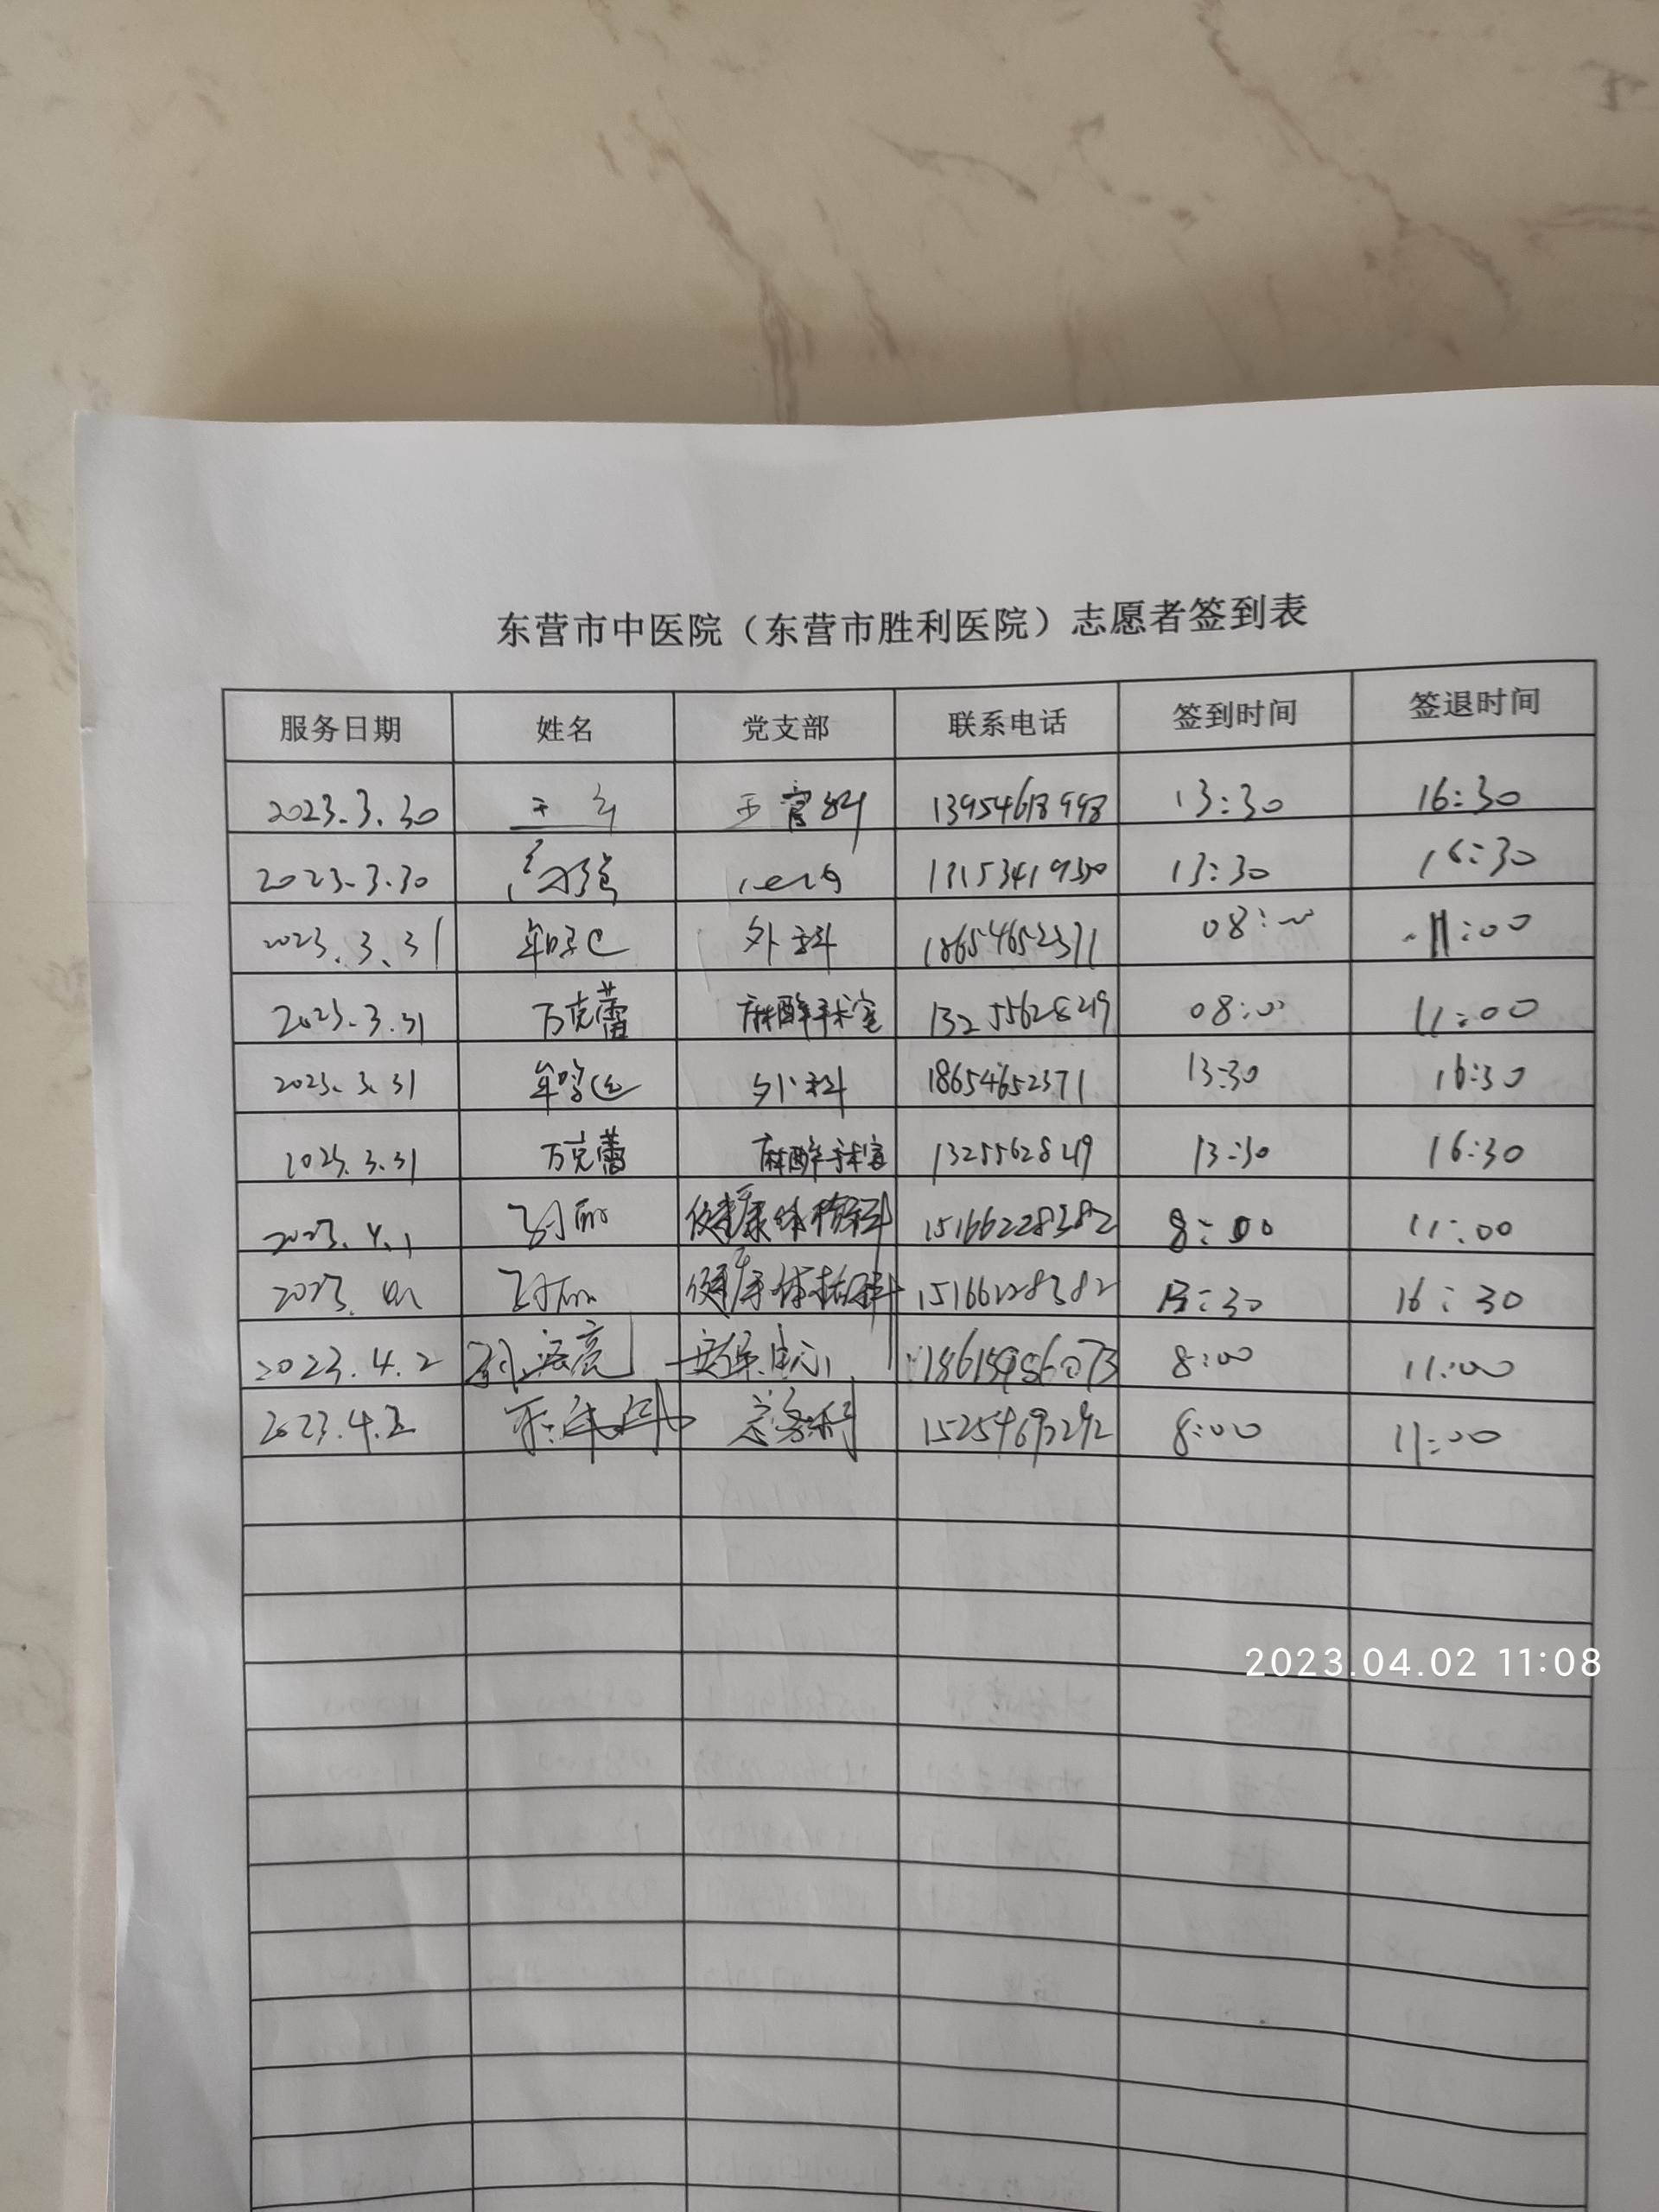 东营市中医院（东营市胜利医院）志愿者签到表
服务日期 姓名 党支部 联系电话 签到时间 签退时间
2023.3.30 13954618998 13:30 16:30
2023.3.30 13:30 16:30
2023.3.31 外科 18654652371 08:00 11:00
2023.3.31 万克蕾 麻醉手术室 13255628219 08:00 11:00
2023.3.31 外科 18654652371 13:30 16:30
2023.3.31 万克蕾 麻醉手术室 13:30 16:30
2023.4.1 健康体检科 15166228382 8:00 11:00
2023. 健康体检科 15166228382 13:30 16:30
2023.4.2 8:00 11:00
2023.4.2 总务科 15254693292 8:00 11:00
2023.04.02 11:08